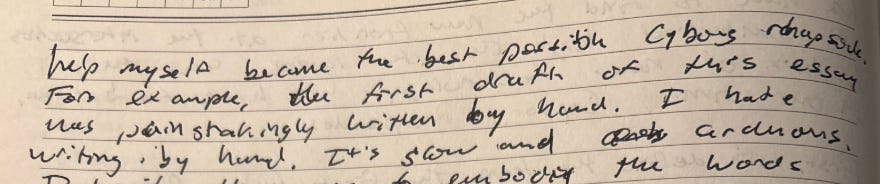 help myself become the best possible Cyborg rhapsode.
For example, the first draft of this essay
was painstakingly written by hand. I hate
writing by hand. It's slow and arduous.
embody the words